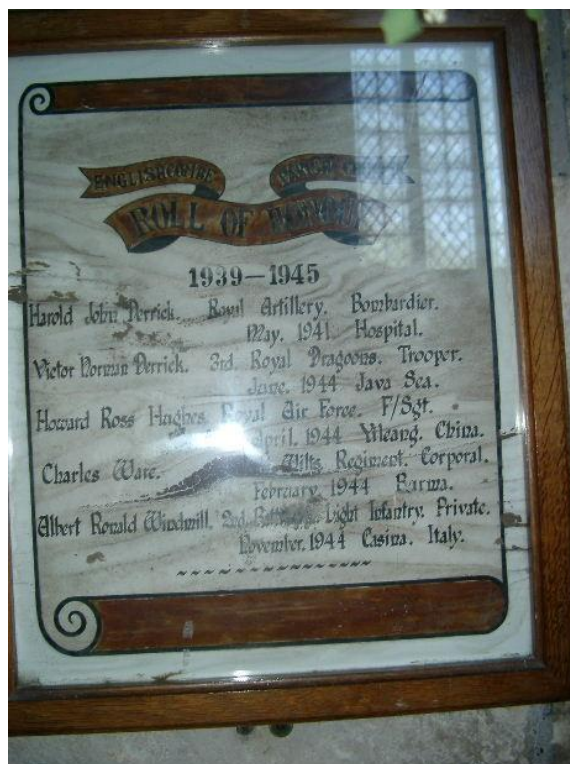 ENGLISHCOMBE
ROLL OF HONOUR
1939-1945
Harold John Derrick. Royal Artillery. Bombardier.
May. 1941. Hospital.
Victor Norman Derrick. 3rd. Royal Dragoons. Trooper.
June. 1944 Java Sea.
Howard Ross Hughes. Royal Air Force. F/Sgt.
April. 1944 China.
Charles Ware. Wilts Regiment. Corporal.
February 1944 Burma.
Albert Ronald Windmill. 2nd. Light Infantry. Private.
November. 1944 Casina. Italy.